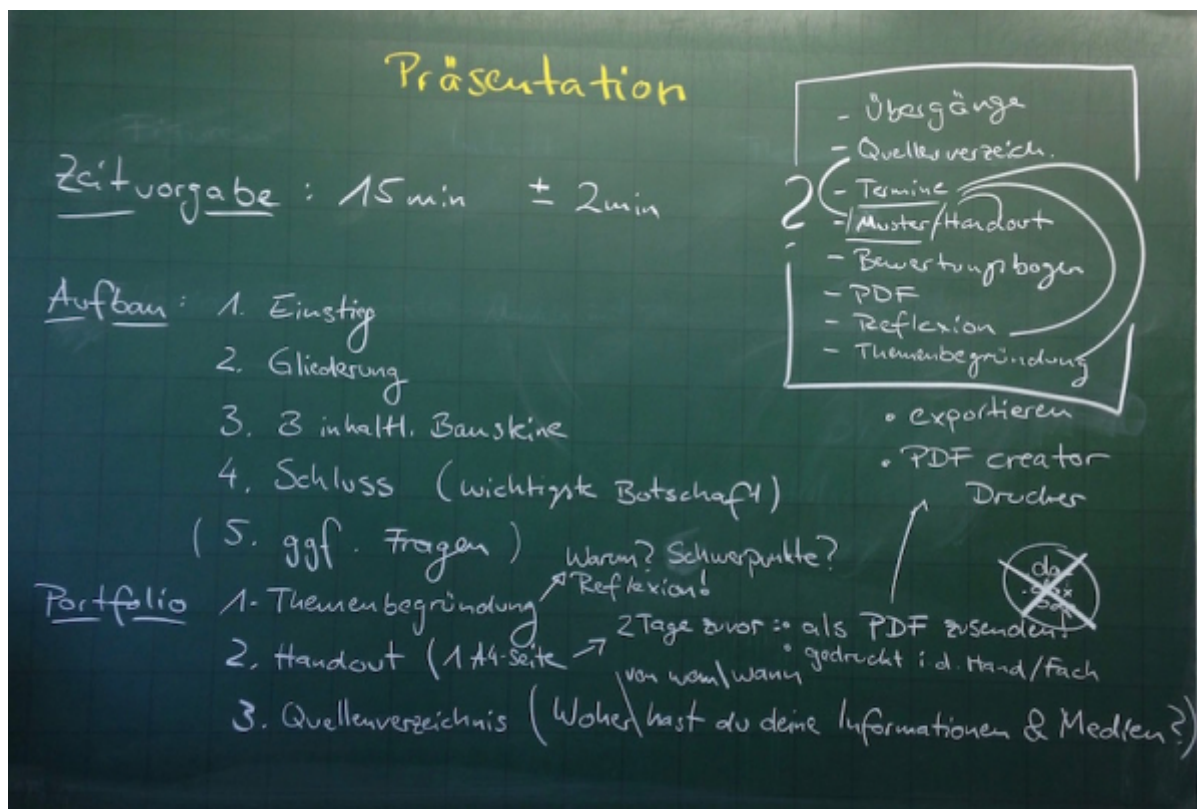 Präsentation
Zeitvorgabe : 15 min ± 2 min
Aufbau : 1. Einstieg
2. Gliederung
3. 3 inhaltl. Bausteine
4. Schluss (wichtigste Botschaft)
(5. ggf. Fragen)
Portfolio 1. Themenbegründung
Warum? Schwerpunkte?
Reflexion!
2. Handout (1 A4-Seite
2 Tage zuvor : • als PDF zusenden!
• gedruckt i.d. Hand/Fach
von wem/wann
3. Quellenverzeichnis (Woher hast du deine Informationen & Medien?)
?
- Übergänge
- Quellenverzeich.
- Termine
- Muster/Handout
- Bewertungsbogen
- PDF
- Reflexion
- Themenbegründung
• exportieren
• PDF creator
Drucker